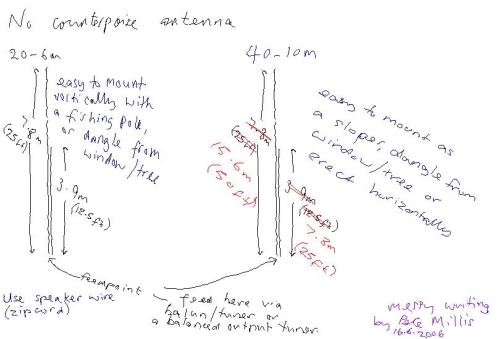 No counterpoise antenna
20-6m
40-10m
easy to mount
vertically with
a fishing pole,
or dangle from
window/tree
7.8m
(25ft)
3.9m
(12.5ft)
easy to mount as
a sloper, dangle from
window/tree or
erect horizontally
7.8m
(25ft)
15.6m
(50ft)
3.9m
(12.5ft)
7.8m
(25ft)
feedpoint
feed here via
balun/tuner or
a balanced output tuner.
Use speaker wire
(zipcord)
messy writing
by Pete Millis
16.6.2006